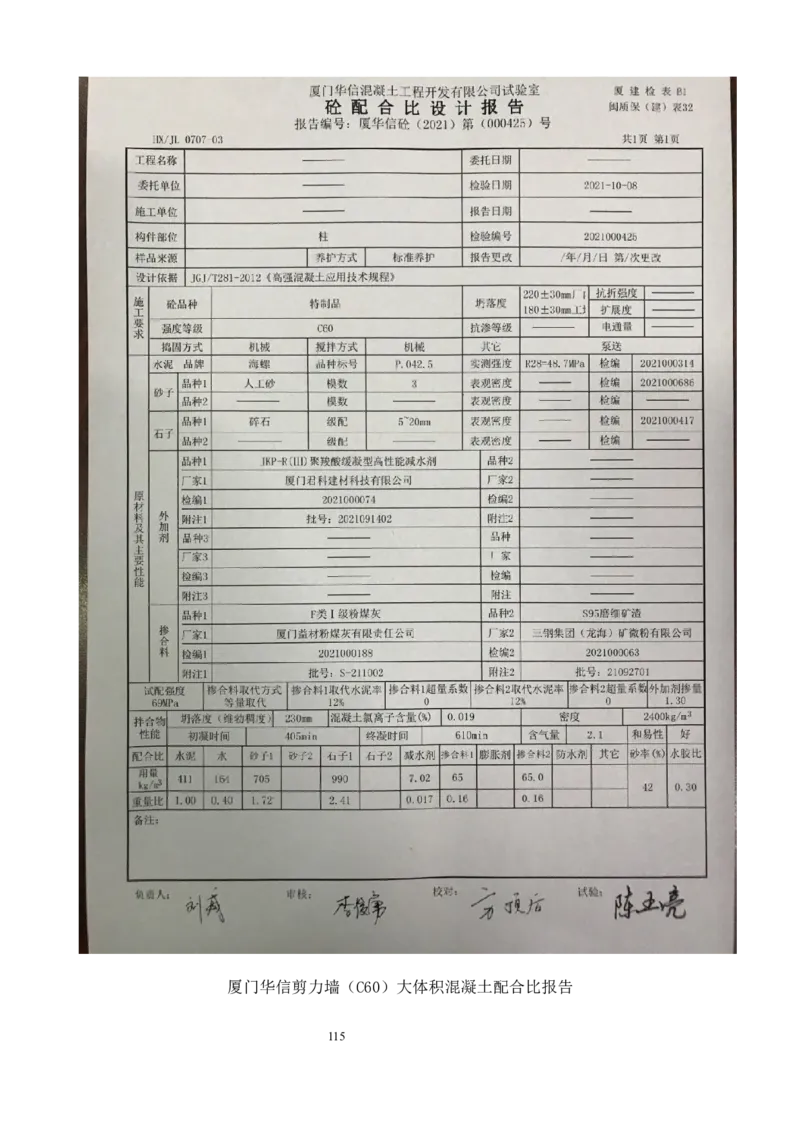 厦门华信混凝土工程开发有限公司试验室 厦 建 检 表 B1
砼 配 合 比 设 计 报 告 闽质保（建）表32
报告编号：厦华信砼（2021）第（000425）号
HX/JL 0707-03 共1页 第1页
工程名称 —— 委托日期 ——
委托单位 —— 检验日期 2021-10-08
施工单位 —— 报告日期 ——
构件部位 柱 检验编号 2021000425
样品来源 养护方式 标准养护 报告更改 /年/月/日 第/次更改
设计依据 JGJ/T281-2012《高强混凝土应用技术规程》
施工要求
砼品种 特制品 坍落度 220±30mm 180±30mm 抗折强度 —— 扩展度 ——
强度等级 C60 抗渗等级 —— 电通量 ——
捣固方式 机械 搅拌方式 机械 其它 泵送
原材料及其主要性能
水泥 品牌 海螺 品种标号 P.O42.5 实测强度 R28=48.7MPa 检编 2021000314
砂子 品种1 人工砂 模数 3 表观密度 —— 检编 2021000686
品种2 —— 模数 —— 表观密度 —— 检编 ——
石子 品种1 碎石 级配 5~20mm 表观密度 —— 检编 2021000417
品种2 —— 级配 —— 表观密度 —— 检编 ——
外加剂
品种1 JKP-R(III)聚羧酸缓凝型高性能减水剂 品种2 ——
厂家1 厦门君科建材科技有限公司 厂家2 ——
检编1 2021000074 检编2 ——
附注1 批号：2021091402 附注2 ——
品种3 —— 品种 ——
厂家3 —— 厂家 ——
检编3 —— 检编 ——
附注3 —— 附注 ——
掺合料
品种1 F类Ⅰ级粉煤灰 品种2 S95磨细矿渣
厂家1 厦门益材粉煤灰有限责任公司 厂家2 三钢集团（龙海）矿微粉有限公司
检编1 2021000188 检编2 2021000063
附注1 批号：S-211002 附注2 批号：21092701
试配强度 掺合料取代方式 掺合料1取代水泥率 掺合料1超量系数 掺合料2取代水泥率 掺合料2超量系数 外加剂掺量
69MPa 等量取代 12% 0 12% 0 1.30
拌合物性能 坍落度（维勃稠度） 230mm 混凝土氯离子含量(%) 0.019 密度 2400kg/m³
初凝时间 405min 终凝时间 610min 含气量 2.1 和易性 好
配合比 水泥 水 砂子1 砂子2 石子1 石子2 减水剂 掺合料1 膨胀剂 掺合料2 防水剂 其它 砂率(%) 水胶比
用量 kg/m³ 411 164 705 990 7.02 65 65.0 42 0.30
重量比 1.00 0.40 1.72 2.41 0.017 0.16 0.16
备注：
负责人： 审核： 校对： 试验：
厦门华信剪力墙（C60）大体积混凝土配合比报告
115